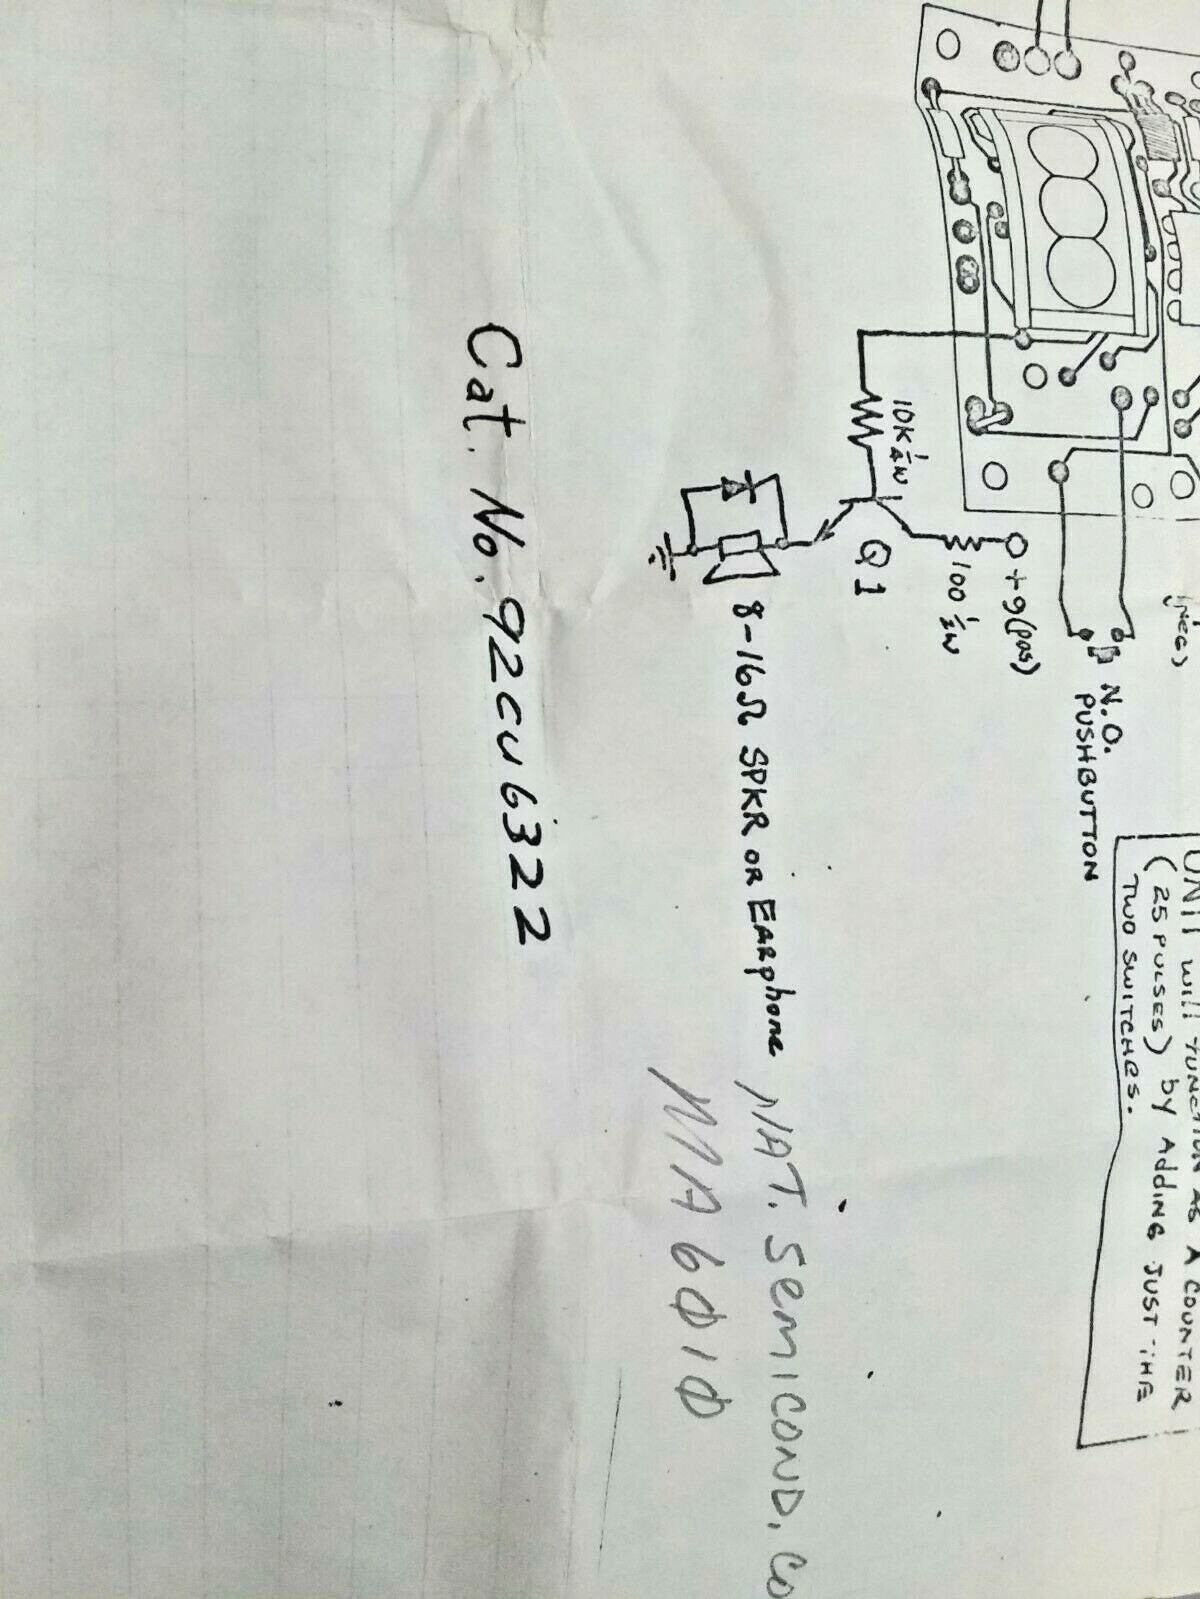 (NEG)
N.O.
PUSHBUTTON
+9(pos)
100 ½W
10K ¼W
Q1
8-16Ω SPKR OR EARphone
UNIT will function AS A COUNTER
(25 PULSES) by ADDING JUST THE
TWO SWITCHES.
NAT. SEMICOND. CO
MA6010
Cat. No. 92CU6322